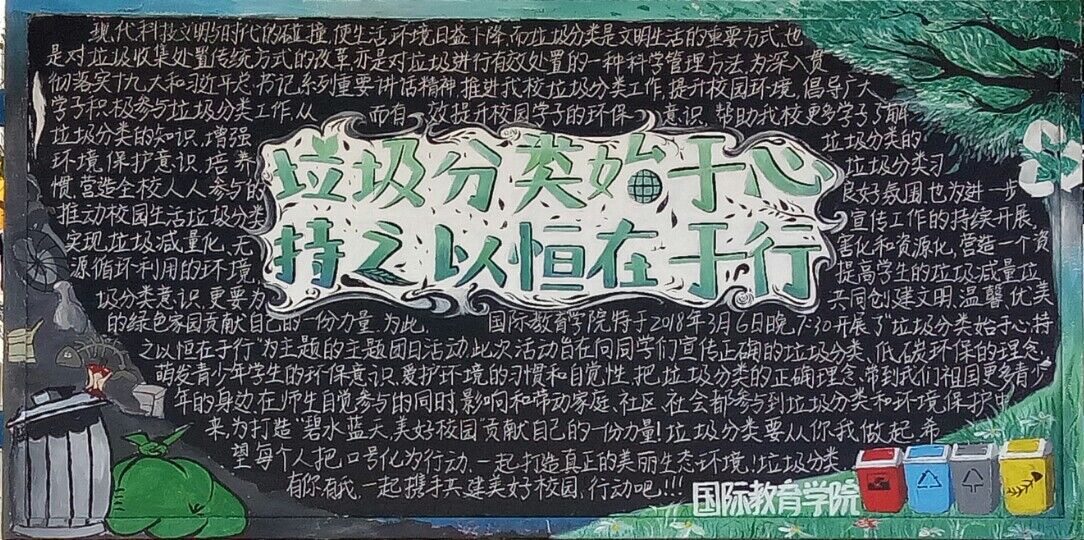 现代科技文明与时代的碰撞,使生活环境日益下降,而垃圾分类是文明生活的重要方式,也
是对垃圾收集处置传统方式的改革,亦是对垃圾进行有效处置的一种科学管理方法,为深入贯
彻落实十九大和习近平总书记系列重要讲话精神,推进我校垃圾分类工作,提升校园环境,倡导广大
学子积极参与垃圾分类工作,从 而有 效提升校园学子的环保 意识,帮助我校更多学子了解
垃圾分类的知识,增强 垃圾分类的
环境保护意识,培养 垃圾分类习
惯,营造全校人人参与的 良好氛围,也为进一步
推动校园生活垃圾分类 宣传工作的持续开展,
实现垃圾减量化、无 害化和资源化,营造一个资
源循环利用的环境 提高学生的垃圾减量垃
圾分类意识,更要为 共同创建文明,温馨,优美
垃圾分类始于心
持之以恒在于行
的绿色家园贡献自己的一份力量,为此, 国际教育学院特于2018年3月6日晚7:30开展了“垃圾分类始于心,持
之以恒在于行”为主题的主题团日活动,此次活动旨在向同学们宣传正确的垃圾分类、低碳环保的理念,
萌发青少年学生的环保意识,爱护环境的习惯和自觉性,把垃圾分类的正确理念,带到我们祖国更多青少
年的身边,在师生自觉参与的同时,影响和带动家庭、社区、社会都参与到垃圾分类和环境保护中
来,为打造“碧水蓝天,美好校园”贡献自己的一份力量!垃圾分类要从你我做起,希
望每个人把口号化为行动,一起打造真正的美丽生态环境!垃圾分类
有你有我,一起携手共建美好校园,行动吧!!!
国际教育学院